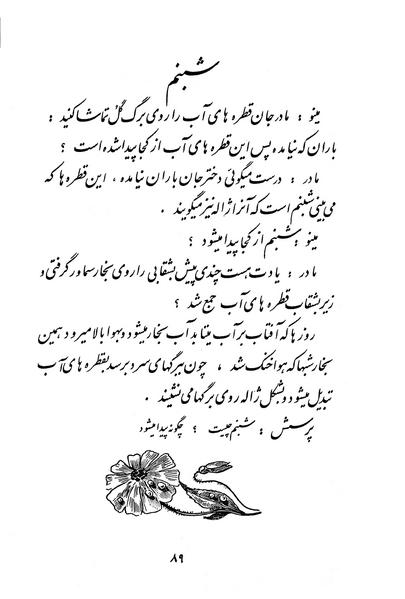 شبنم
مینو : مادر جان قطره های آب را روی برگ گل تماشا کنید :
باران که نیامده پس این قطره های آب از کجا پیدا شده است ؟
مادر : درست میگوئی دختر جان باران نیامده ، این قطره ها که
می بینی شبنم است که آنرا ژاله نیز میگویند .
مینو : شبنم از کجا پیدا میشود ؟
مادر : یادت هست چندی پیش بشقابی را روی بخار سماور گرفتی و
زیر بشقاب قطره های آب جمع شد ؟
روزها که آفتاب بر آب میتابد آب بخار میشود و بهوا بالا میرود همین
بخار شبها که هوا خنک شد ، چون ببرگهای سرد برسد بقطره های آب
تبدیل میشود و بشکل ژاله روی برگها می نشیند .
پرسش : شبنم چیست ؟ چگونه پیدا میشود
۸۹